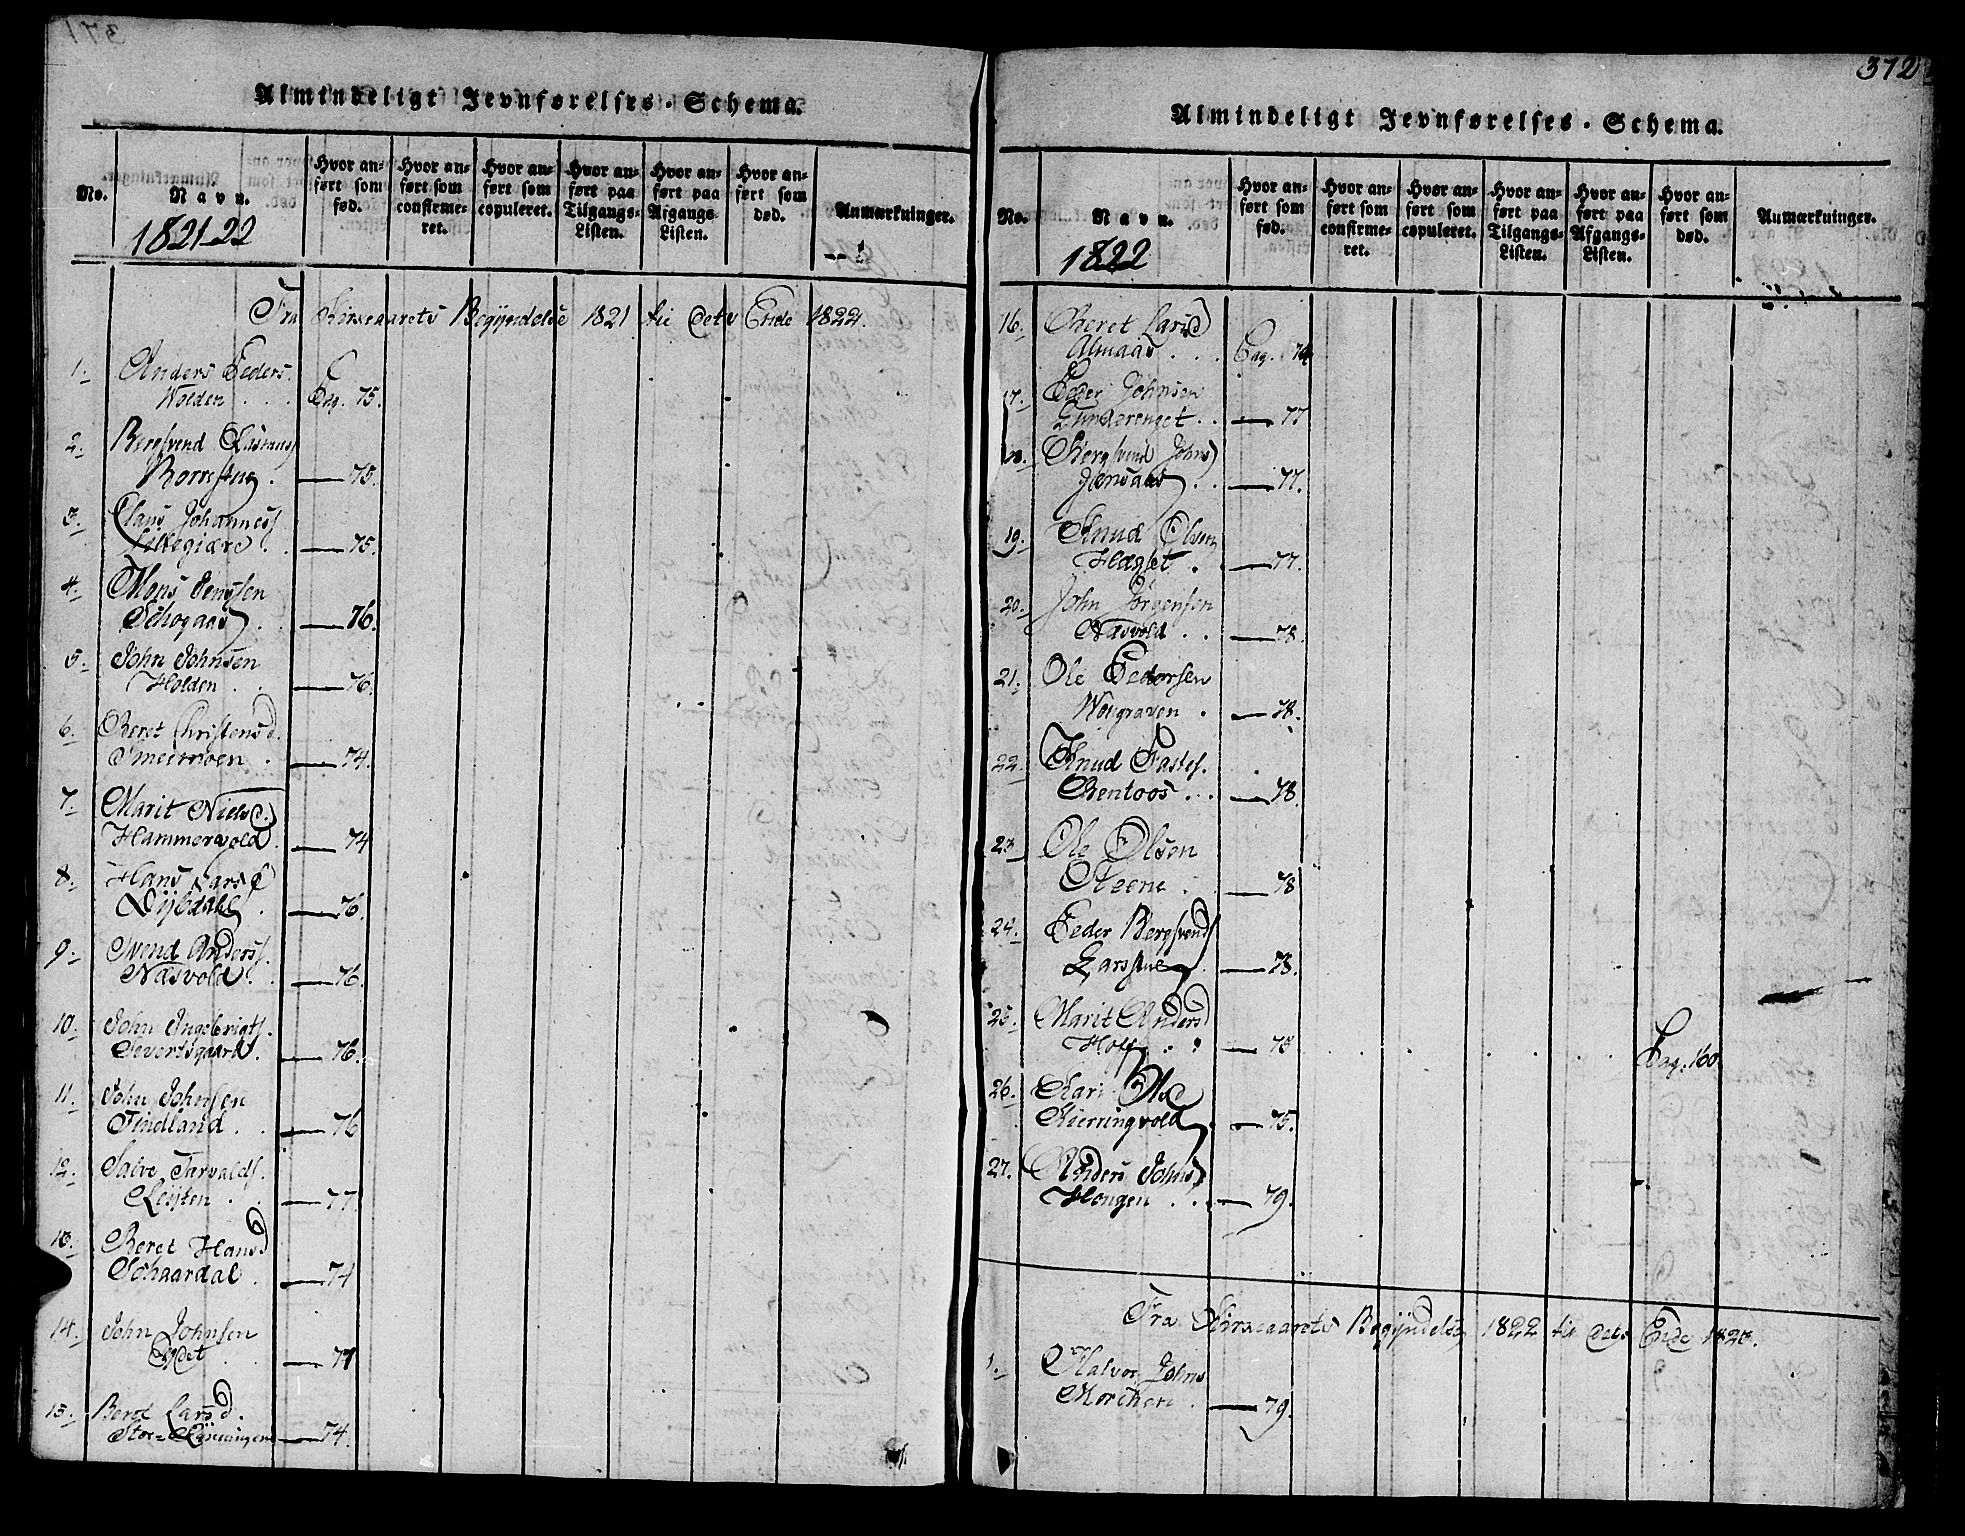 Almindeligt Jevnførelses-Schema.
No.
Navn.
1821-22
Hvor anført som fød.
Hvor anført som confirmeret.
Hvor anført som copuleret.
Hvor anført paa Tilgangs-Listen.
Hvor anført paa Afgangs-Listen.
Hvor anført som død.
Anmærkninger.
Fra Kirkeaarets Begyndelse 1821 til dets Ende 1822.
1. Anders Peders.
Wolden . . . Pag. 75.
2. Bergsvend
75.
3. Claus Johannes
Lillegiære . . 75.
4. Mons Jensen
Schogaas . 76.
5. John Johnsen
Holden . . 76.
6. Beret Christensd.
Smedmoen . 74.
7. Marit Nielsd.
Hammervold . 74
8. Hans Lars
Dybdahl . 76.
9. Svend Anders.
Næsvold . 76.
10. John Ingebrigts.
Severtsgaard . 76.
11. John Johnsen
Findland . . 76
12. Salve Tarvalds.
Leysten . . 77.
13. Beret Hansd
Schaardal . 74
14. John Johnsen
Ødet . . 77
15. Beret Larsd.
Stor- 74.
372
Almindeligt Jevnførelses-Schema.
No.
Navn.
1822
Hvor anført som fød.
Hvor anført som confirmeret.
Hvor anført som copuleret.
Hvor anført paa Tilgangs-Listen.
Hvor anført paa Afgangs-Listen.
Hvor anført som død.
Anmærkninger.
16. Beret Larsd
Almaas . . . Pag. 74
17. Peder Johnsen
. . 77
18. Bergsvend Johns
Jensaas . . 77.
19. Knud Olsen
. 77.
20. John Jørgensen
Næsvold . . 78.
21. Ole Pedersen
Wougraven . 78.
22. Knud
Bentoos . . . 78.
23. Ole Olsen
Steene . 78
24. Peder Bergsvends
Larsstuen 78.
25. Marit Andersd
Hoff . . 75 . . . . . . . Pag. 160
26. Kari Olsd
Kierringvold . 75.
27. Anders Johns
Hougen . . . 79.
Fra Kirkeaarets Begyndelse 1822 til dets Ende 1823.
1. Halvor Johns
Morchen . 79.